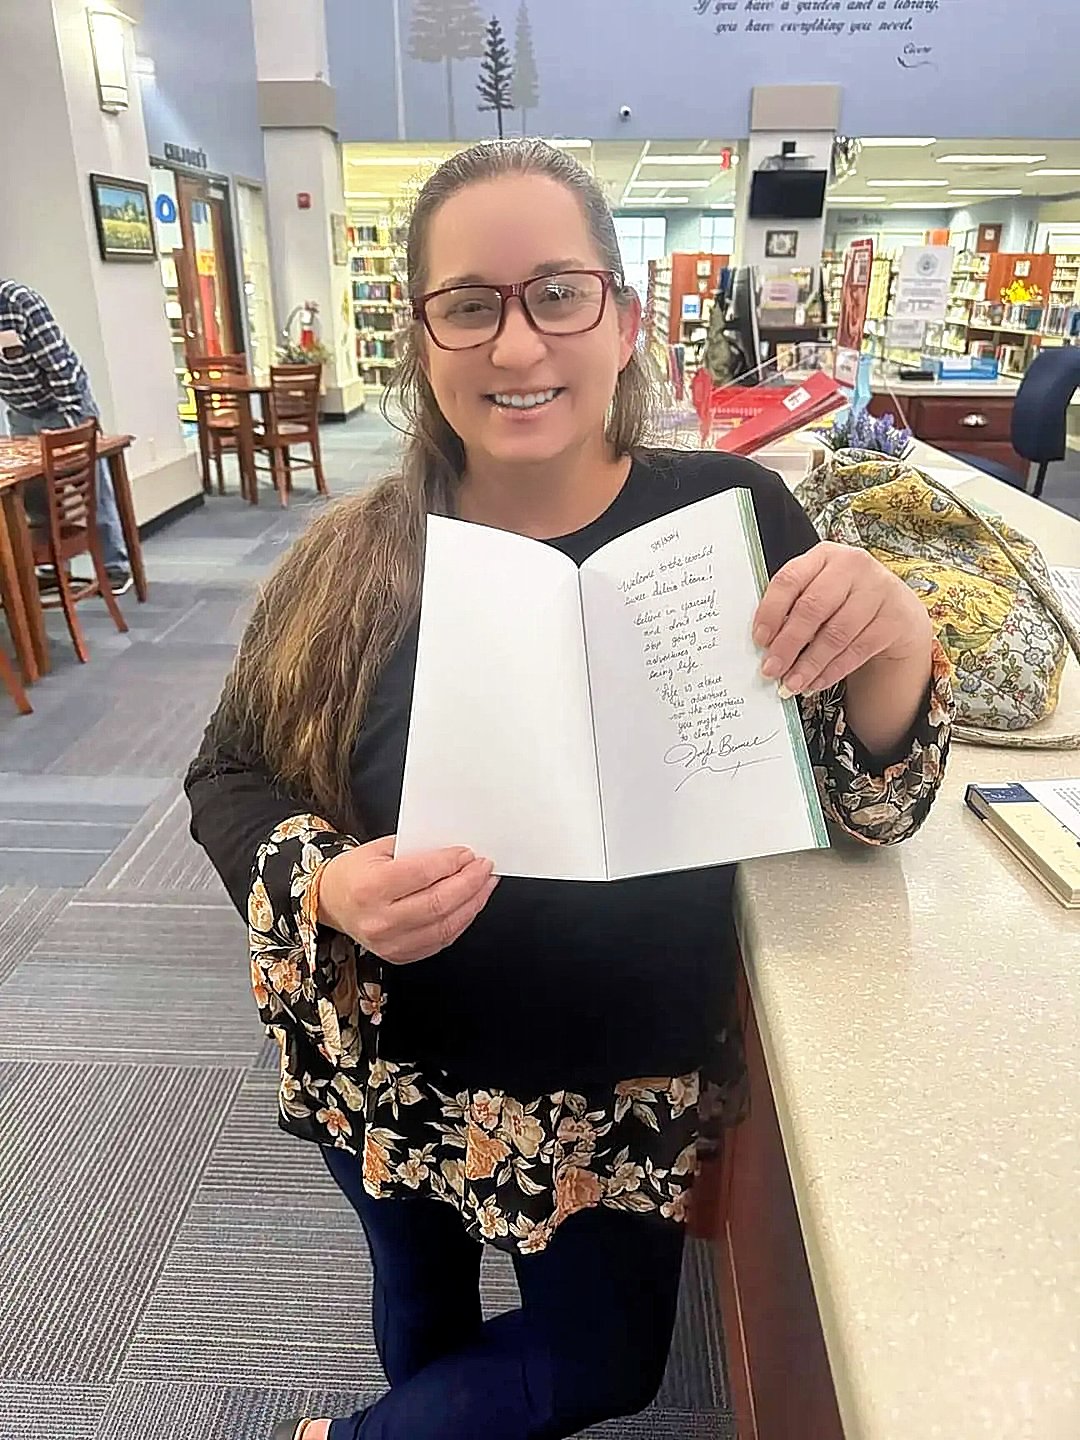 If you have a garden and a library,
you have everything you need.
Cicero
CHILDREN'S
Welcome to the world
sweet
Believe in yourself
and don't ever
stop going on
adventures and
living life.
"Life is about
the adventures
not the mountains
you might have
to climb"